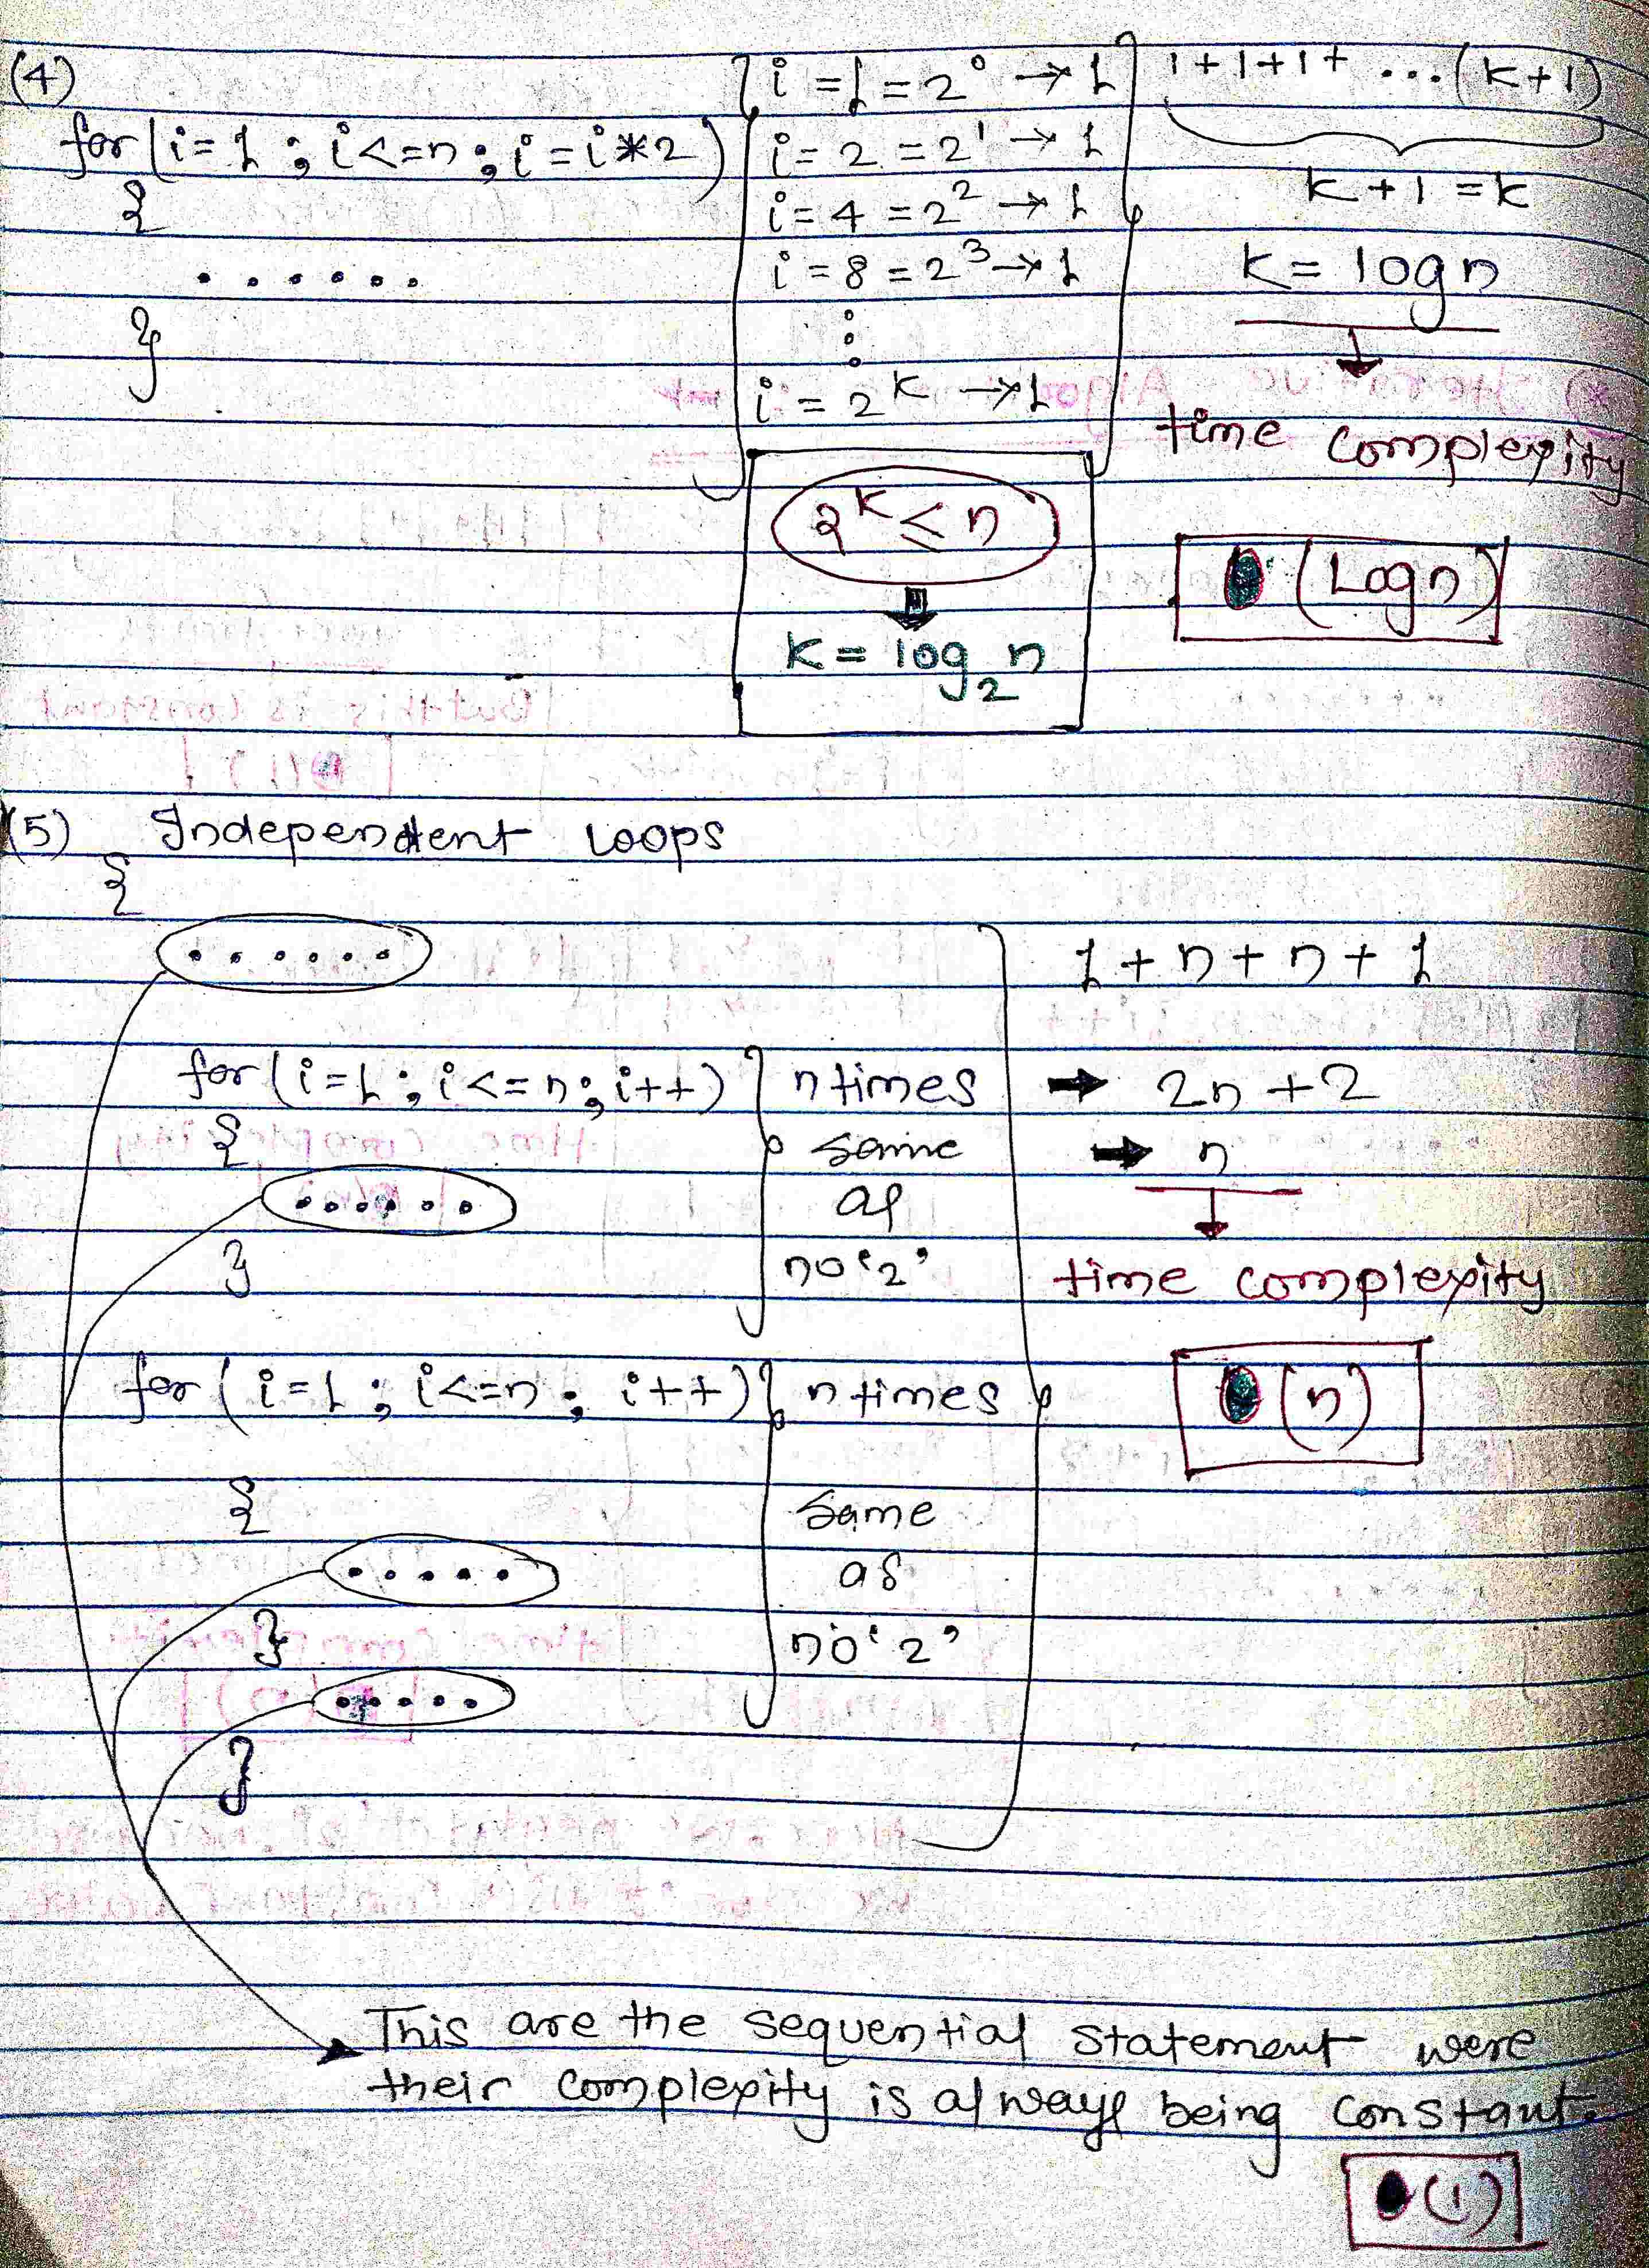 (4)
for(i=1 ; i<=n ; i=i*2)
{
. . . . . .
}
i = 1 = 2⁰ → 1
i = 2 = 2¹ → 1
i = 4 = 2² → 1
i = 8 = 2³ → 1
⋮
i = 2ᴷ → 1
2ᴷ ≤ n
K = log₂n
1+1+1+ ...(K+1)
K+1 = K
K = logn
time complexity
(Logn)
(5) Independent Loops
{
. . . . . .
for(i=1 ; i<=n ; i++) n times
{ same
. . . . . . as
} no '2'
for(i=1 ; i<=n ; i++) n times
{ same
. . . . . as
} no '2'
. . . . .
}
1 + n + n + 1
→ 2n + 2
→ n
time complexity
(n)
This are the sequential statement were
their complexity is always being constant.
(1)